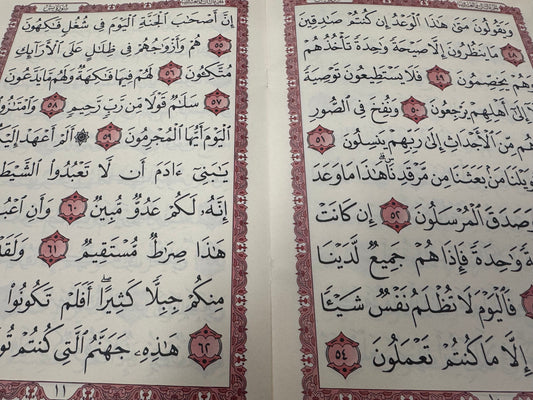 وَيَقُولُونَ مَتَىٰ هَٰذَا ٱلْوَعْدُ إِن كُنتُمْ صَٰدِقِينَ
٤٨ مَا يَنظُرُونَ إِلَّا صَيْحَةً وَٰحِدَةً تَأْخُذُهُمْ
وَهُمْ يَخِصِّمُونَ ٤٩ فَلَا يَسْتَطِيعُونَ تَوْصِيَةً
إِلَىٰٓ أَهْلِهِمْ يَرْجِعُونَ ٥٠ وَنُفِخَ فِى ٱلصُّورِ
هُم مِّنَ ٱلْأَجْدَاثِ إِلَىٰ رَبِّهِمْ يَنسِلُونَ ٥١
يَٰوَيْلَنَا مَنۢ بَعَثَنَا مِن مَّرْقَدِنَا ۗ هَٰذَا مَا وَعَدَ
وَصَدَقَ ٱلْمُرْسَلُونَ ٥٢ إِن كَانَتْ
وَٰحِدَةً فَإِذَا هُمْ جَمِيعٌ لَّدَيْنَا
فَٱلْيَوْمَ لَا تُظْلَمُ نَفْسٌ شَيْـًٔا
إِلَّا مَا كُنتُمْ تَعْمَلُونَ ٥٤
إِنَّ أَصْحَٰبَ ٱلْجَنَّةِ ٱلْيَوْمَ فِى شُغُلٍ فَٰكِهُونَ
٥٥ هُمْ وَأَزْوَٰجُهُمْ فِى ظِلَٰلٍ عَلَى ٱلْأَرَآئِكِ
مُتَّكِـُٔونَ ٥٦ لَهُمْ فِيهَا فَٰكِهَةٌ وَلَهُم مَّا يَدَّعُونَ
٥٧ سَلَٰمٌ قَوْلًا مِّن رَّبٍّ رَّحِيمٍ ٥٨ وَٱمْتَٰزُوا۟
ٱلْيَوْمَ أَيُّهَا ٱلْمُجْرِمُونَ ٥٩ ۞ أَلَمْ أَعْهَدْ إِلَيْكُمْ
يَٰبَنِىٓ ءَادَمَ أَن لَّا تَعْبُدُوا۟ ٱلشَّيْطَٰنَ
إِنَّهُۥ لَكُمْ عَدُوٌّ مُّبِينٌ ٦٠ وَأَنِ
هَٰذَا صِرَٰطٌ مُّسْتَقِيمٌ ٦١ وَلَقَدْ
مِنكُمْ جِبِلًّا كَثِيرًا ۖ أَفَلَمْ تَكُونُوا۟
٦٢ هَٰذِهِۦ جَهَنَّمُ ٱلَّتِى كُنتُمْ
١١